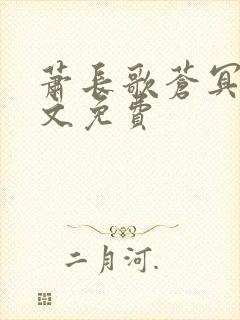 萧长歌苍冥
文免费
二月河.